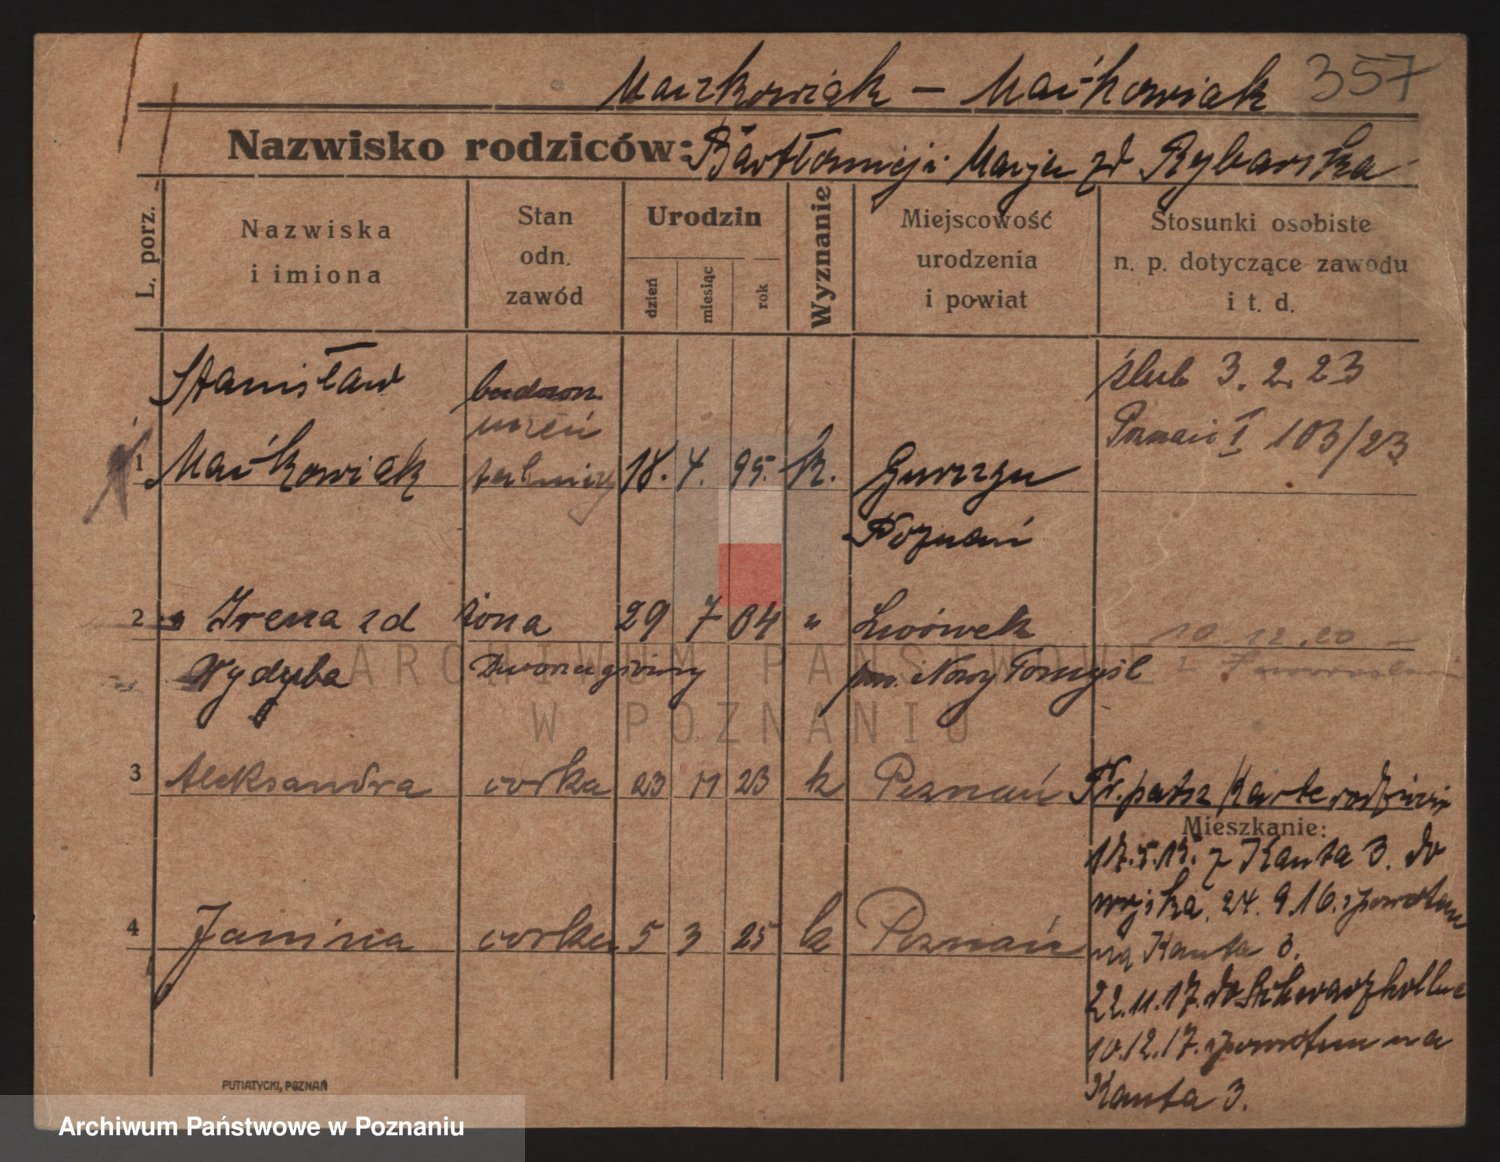 Maczkowiak — Maćkowiak 357
Nazwisko rodziców: Bartłomiej i Marja zd Rybarska
L. porz.
Nazwiska
i imiona
Stan
odn.
zawód
Urodzin
dzień
miesiąc
rok
Wyznanie
Miejscowość
urodzenia
i powiat
Stosunki osobiste
n. p. dotyczące zawodu
i t. d.
Stanisław
ślub 3. 2. 23
uczeń
Poznań I 103/23
1 Maćkowiak 18. 4. 95. k.
Poznań
2 " Irena zd żona 29 7 04 " Lwówek
10.12.20 —
pow. Nowy Tomyśl
3 Aleksandra córka 23 11 23 k Poznań
Pr. patrz Karte rodziców
Mieszkanie:
17.5.15. z Kanta 3. do
wojska. 24. 9.16. z powrotem
4 Janina córka 5 3 25 k Poznań
na Kanta 3.
22.11.17. do
10.12.17. z powrotem na
Kanta 3.
PUTIATYCKI, POZNAŃ
ARCHIWUM PAŃSTWOWE
W POZNANIU
Archiwum Państwowe w Poznaniu